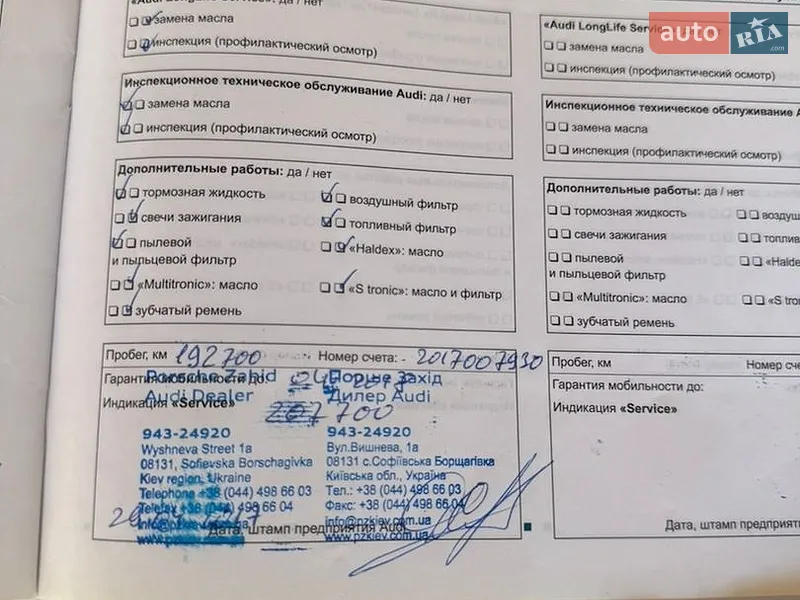 да / нет
замена масла
инспекция (профилактический осмотр)
Инспекционное техническое обслуживание Audi: да / нет
замена масла
инспекция (профилактический осмотр)
Дополнительные работы: да / нет
тормозная жидкость
воздушный фильтр
свечи зажигания
топливный фильтр
пылевой
и пыльцевой фильтр
«Haldex»: масло
«Multitronic»: масло
«S tronic»: масло и фильтр
зубчатый ремень
Пробег, км 192700 Номер счета: - 2017007930
Гарантия мобильности до:
Porsche Zahid
Порше Захід
Audi Dealer
Дилер Audi
Индикация «Service»
207 700
943-24920
Wyshneva Street 1a
08131, Sofievska Borschagivka
Kiev region, Ukraine
Telephone +38 (044) 498 66 03
Telefax +38 (044) 498 66 04
943-24920
Вул.Вишнева, 1а
08131 с.Софіївська Борщагівка
Київська обл., Україна
Тел.: +38 (044) 498 66 03
Факс: +38 (044) 498 66 04
info@pzkiev.com.ua
www.pzkiev.com.ua
Дата, штамп предприятия Audi
auto RIA
.com
«Audi LongLife
замена масла
инспекция (профилактический осмотр)
Инспекционное техническое обслуживание
замена масла
инспекция (профилактический осмотр)
Дополнительные работы: да / нет
тормозная жидкость
свечи зажигания
пылевой
и пыльцевой фильтр
«Multitronic»: масло
зубчатый ремень
Пробег, км
Гарантия мобильности до:
Индикация «Service»
Дата, штамп